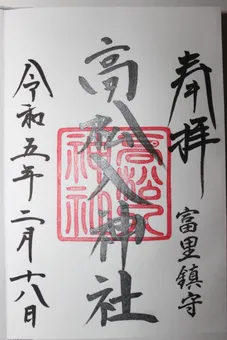 奉拝
富里鎮守
高松入神社
令和五年二月十八日
高松入
神社